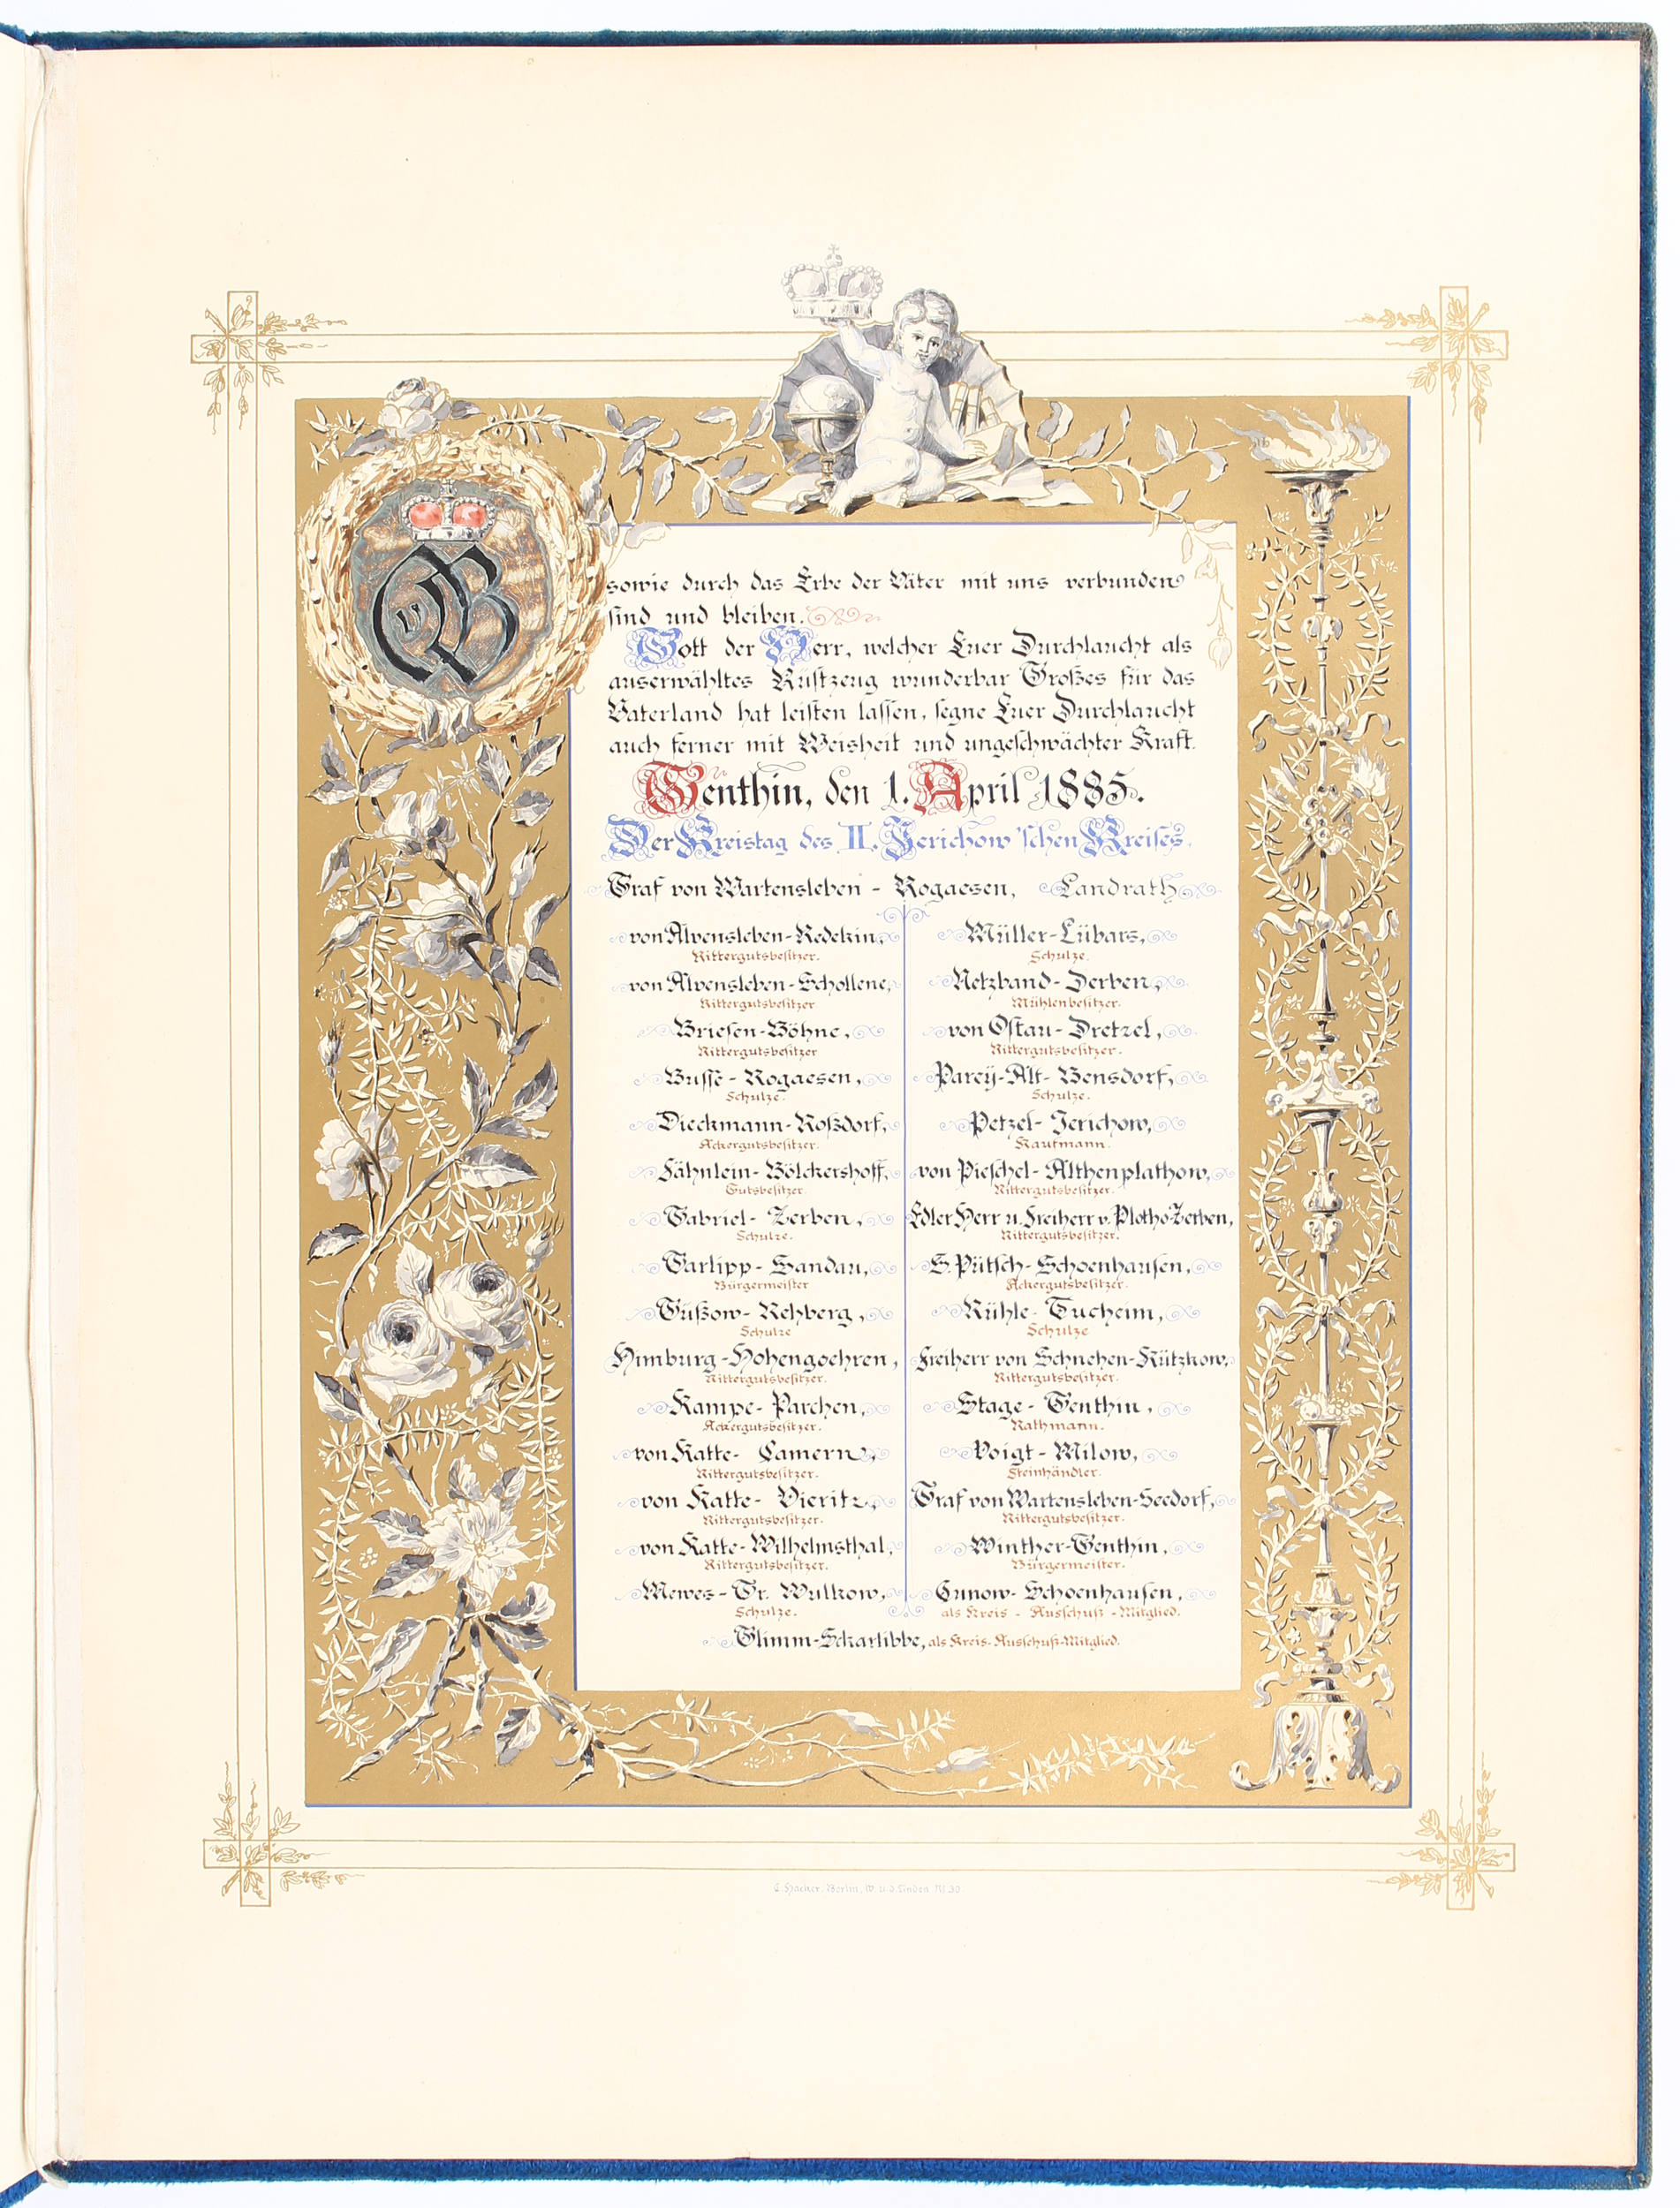 OvB
sowie durch das Erbe der Väter mit uns verbunden
sind und bleiben.
Gott der Herr, welcher Euer Durchlaucht als
auserwähltes Rüstzeug wunderbar Großes für das
Vaterland hat leisten lassen, segne Euer Durchlaucht
auch ferner mit Weisheit und ungeschwächter Kraft.
Genthin, den 1. April 1885.
Der Kreistag des II. Jerichow'schen Kreises.
Graf von Wartensleben - Rogaesen, Landrath
von Alvensleben-Redekin,
Rittergutsbesitzer.
von Alvensleben-Schollene,
Rittergutsbesitzer
Briesen-Böhne,
Rittergutsbesitzer
Busse - Rogaesen,
Schulze.
Dieckmann-Roßdorf,
Ackergutsbesitzer.
Fähnlein-Bölckershoff,
Gutsbesitzer.
Gabriel- Zerben,
Schulze.
Garlipp- Sandau,
Bürgermeister
Güßow- Rehberg,
Schulze
Himburg-Hohengoehren,
Rittergutsbesitzer.
Kampe- Parchen,
Ackergutsbesitzer.
von Katte- Camern,
Rittergutsbesitzer.
von Katte- Vieritz,
Rittergutsbesitzer.
von Katte-Wilhelmsthal,
Rittergutsbesitzer.
Mewes- Gr. Wulkow,
Schulze.
Müller-Lübars,
Schulze.
Netzband- Derben,
Mühlenbesitzer.
von Ostau- Dretzel,
Rittergutsbesitzer.
Parey-Alt- Bensdorf,
Schulze.
Petzel- Jerichow,
Kaufmann.
von Pieschel- Althenplathow,
Rittergutsbesitzer.
Edler Herr u. Freiherr v. Plotho-Zerben,
Rittergutsbesitzer.
S. Pütsch- Schoenhausen,
Ackergutsbesitzer.
Rühle- Tucheim,
Schulze
Freiherr von Schnehen-Kützkow,
Rittergutsbesitzer.
Stage- Genthin,
Rathmann.
Voigt- Milow,
Steinhändler.
Graf von Wartensleben-Seedorf,
Rittergutsbesitzer.
Winther-Genthin,
Bürgermeister.
Gunow- Schoenhausen,
als Kreis - Ausschuß - Mitglied.
Glimm-Scharlibbe, als Kreis-Ausschuß-Mitglied.
C. Hacker, Berlin, W. u. d. Linden № 30.